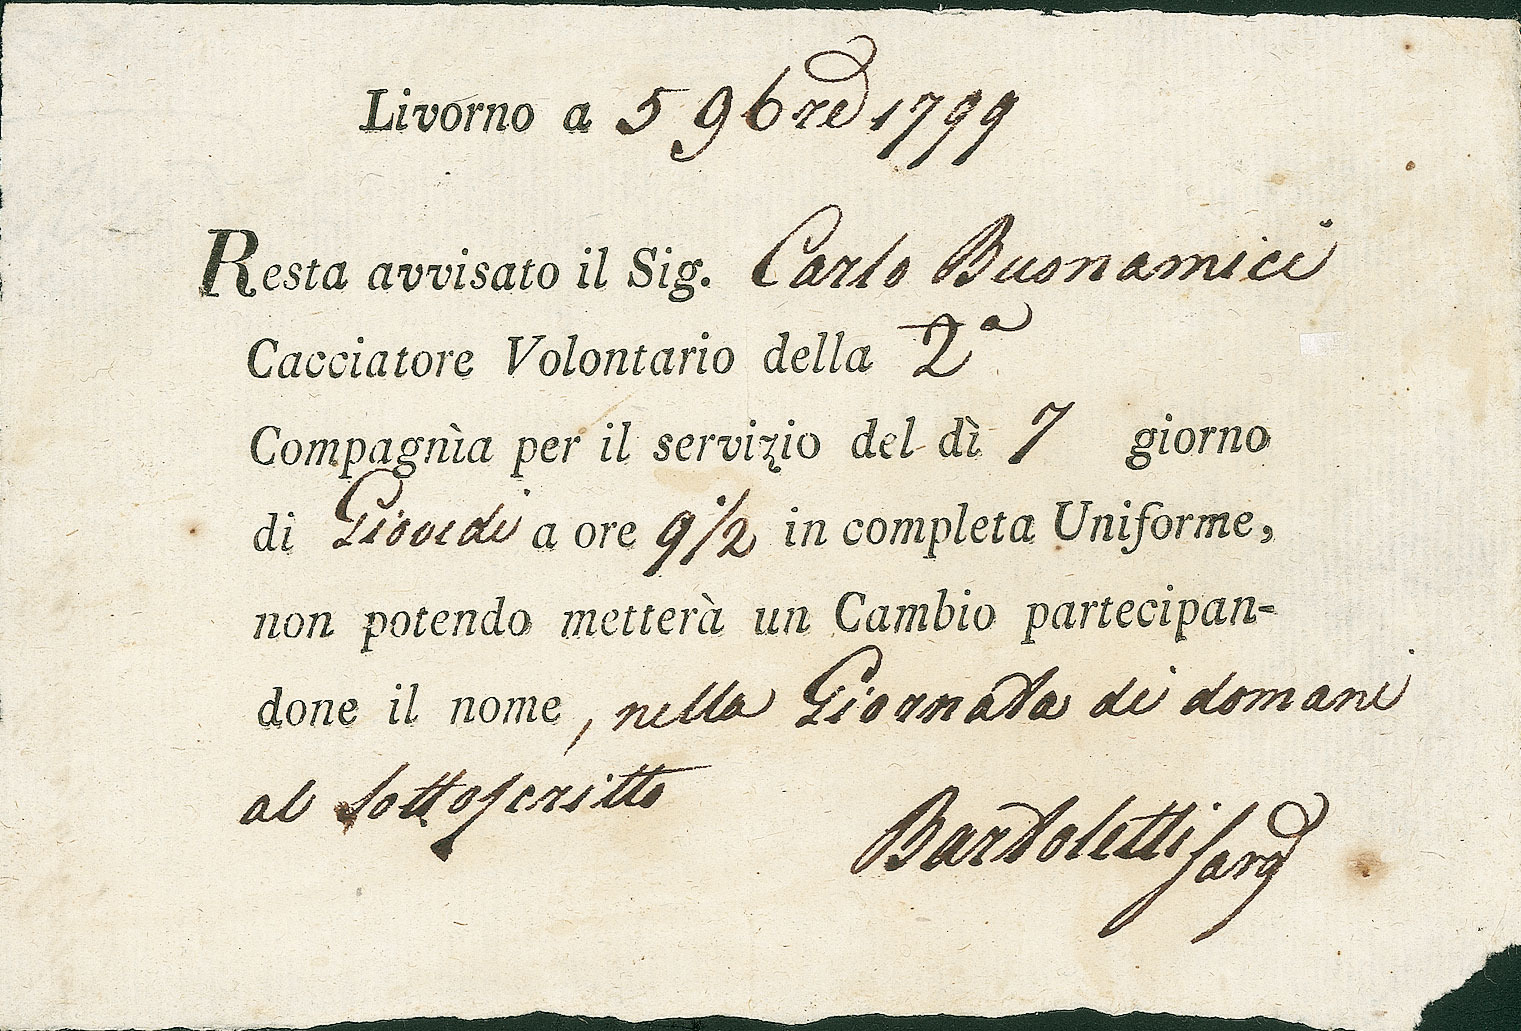 Livorno a 5 9bre 1799
Resta avvisato il Sig. Carlo Buonamici
Cacciatore Volontario della 2ª
Compagnìa per il servizio del dì 7 giorno
di Giovedi a ore 9½ in completa Uniforme,
non potendo metterà un Cambio partecipan-
done il nome, nella Giornata di domani
al Sottoscritto
Bartoletti Sarg